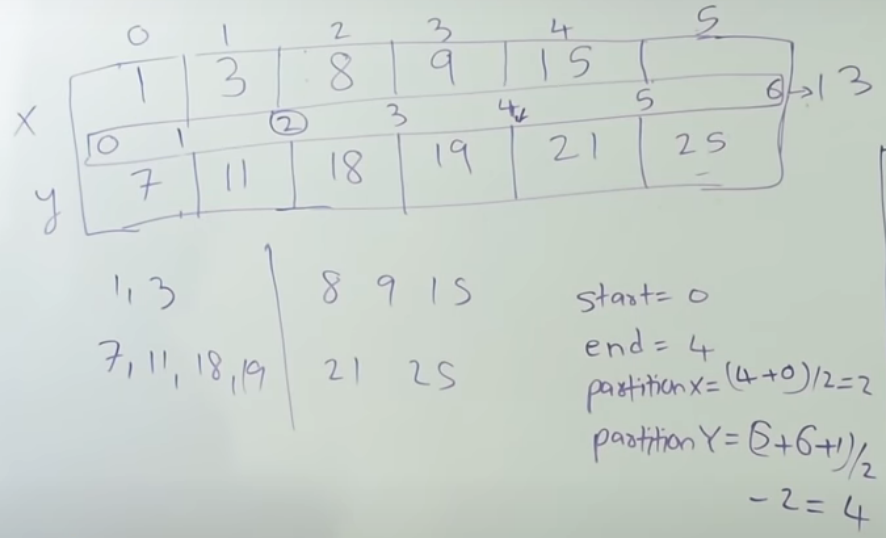 0 1 2 3 4 5
x 1 3 8 9 15
0 1 2 3 4 5 6 → 13
y 7 11 18 19 21 25
1, 3 8 9 15
7, 11, 18, 19 21 25
start = 0
end = 4
partitionx = (4+0)/2 = 2
partitionY = (5+6+1)/2
- 2 = 4